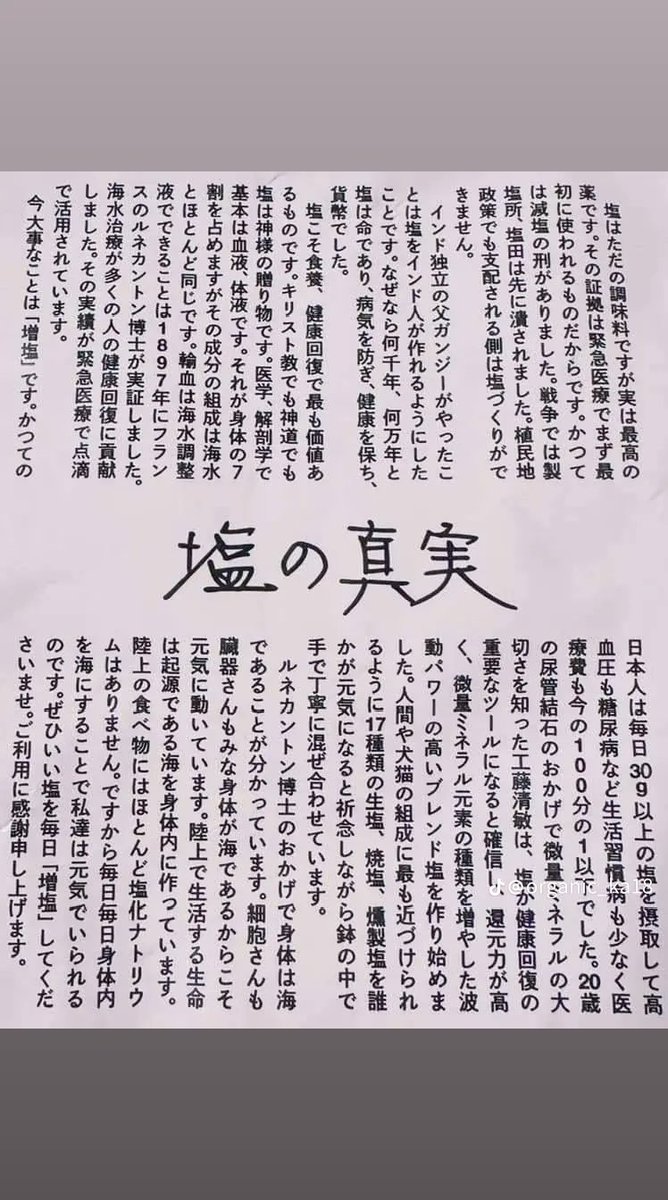 塩はただの調味料ですが実は最高の
薬です。その証拠は緊急医療でまず最
初に使われるものだからです。かつて
は減塩の刑がありました。戦争では製
塩所、塩田は先に潰されました。植民地
政策でも支配される側は塩づくりがで
きません。
インド独立の父ガンジーがやったこ
とは塩をインド人が作れるようにした
ことです。なぜなら何千年、何万年と
塩は命であり、病気を防ぎ、健康を保ち、
貨幣でした。
塩こそ食養、健康回復で最も価値あ
るものです。キリスト教でも神道でも
塩は神様の贈り物です。医学、解剖学で
基本は血液、体液です。それが身体の7
割を占めますがその成分の組成は海水
とほとんど同じです。輸血は海水調整
液でできることは1897年にフラン
スのルネカントン博士が実証しました。
海水治療が多くの人の健康回復に貢献
しました。その実績が緊急医療で点滴
で活用されています。
今大事なことは「増塩」です。かつての
塩の真実
日本人は毎日30g以上の塩を摂取して高
血圧も糖尿病など生活習慣病も少なく医
療費も今の100分の1以下でした。20歳
の尿管結石のおかげで微量ミネラルの大
切さを知った工藤清敏は、塩が健康回復の
重要なツールになると確信し、還元力が高
く、微量ミネラル元素の種類を増やした波
動パワーの高いブレンド塩を作り始めま
した。人間や犬猫の組成に最も近づけられ
るように17種類の生塩、焼塩、燻製塩を誰
かが元気になると祈念しながら鉢の中で
手で丁寧に混ぜ合わせています。
ルネカントン博士のおかげで身体は海
であることが分かっています。細胞さんも
臓器さんもみな身体が海であるからこそ
元気に動いています。陸上で生活する生命
は起源である海を身体内に作っています。
陸上の食べ物にはほとんど塩化ナトリウ
ムはありません。ですから毎日毎日身体内
を海にすることで私達は元気でいられる
のです。ぜひいい塩を毎日「増塩」してくだ
さいませ。ご利用に感謝申し上げます。
@organic_ka18